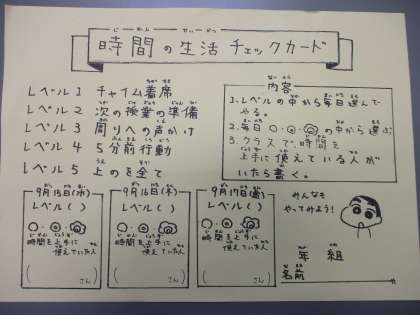 時間の生活チェックカード
レベル1 チャイム着席
レベル2 次の授業の準備
レベル3 周りへの声かけ
レベル4 5分前行動
レベル5 上のを全て
内容
1.レベルの中から毎日選んでやる。
2.毎日○・◎・の中から選ぶ
3.クラスで、時間を
上手に使えている人が
いたら書く。
9月15日(水)
レベル( )
時間を上手に
使えていた人
( さん)
9月16日(木)
レベル( )
時間を上手に
使えていた人
( さん)
9月17日(金)
レベル( )
時間を上手に
使えていた人
( さん)
みんなも
やってみよう!
年 組
名前